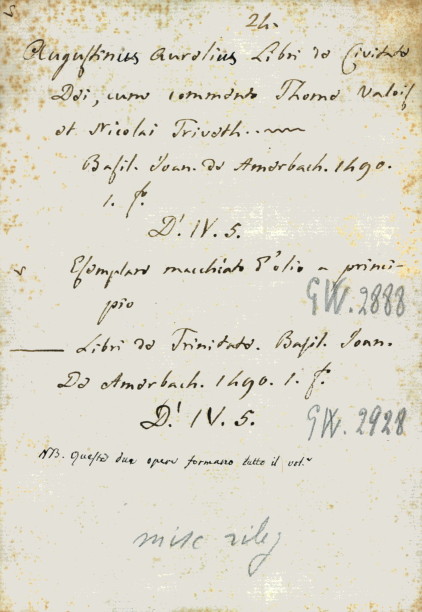 24.
Augustinus Aurelius Libri de Civitate
Dei, cum commento Thome Valois
et Nicolai Triveth..
Basil. Ioan. de Amerbach. 1490.
1. f.º
D! IV. 5.
Esemplare macchiato d'olio a princi-
pio
GW. 2888
—— Libri de Trinitate. Basil. Ioan.
De Amerbach. 1490. 1. f.º
D! IV. 5.
GW. 2928
NB. Queste due opere formano tutto il vol.e
misc rileg